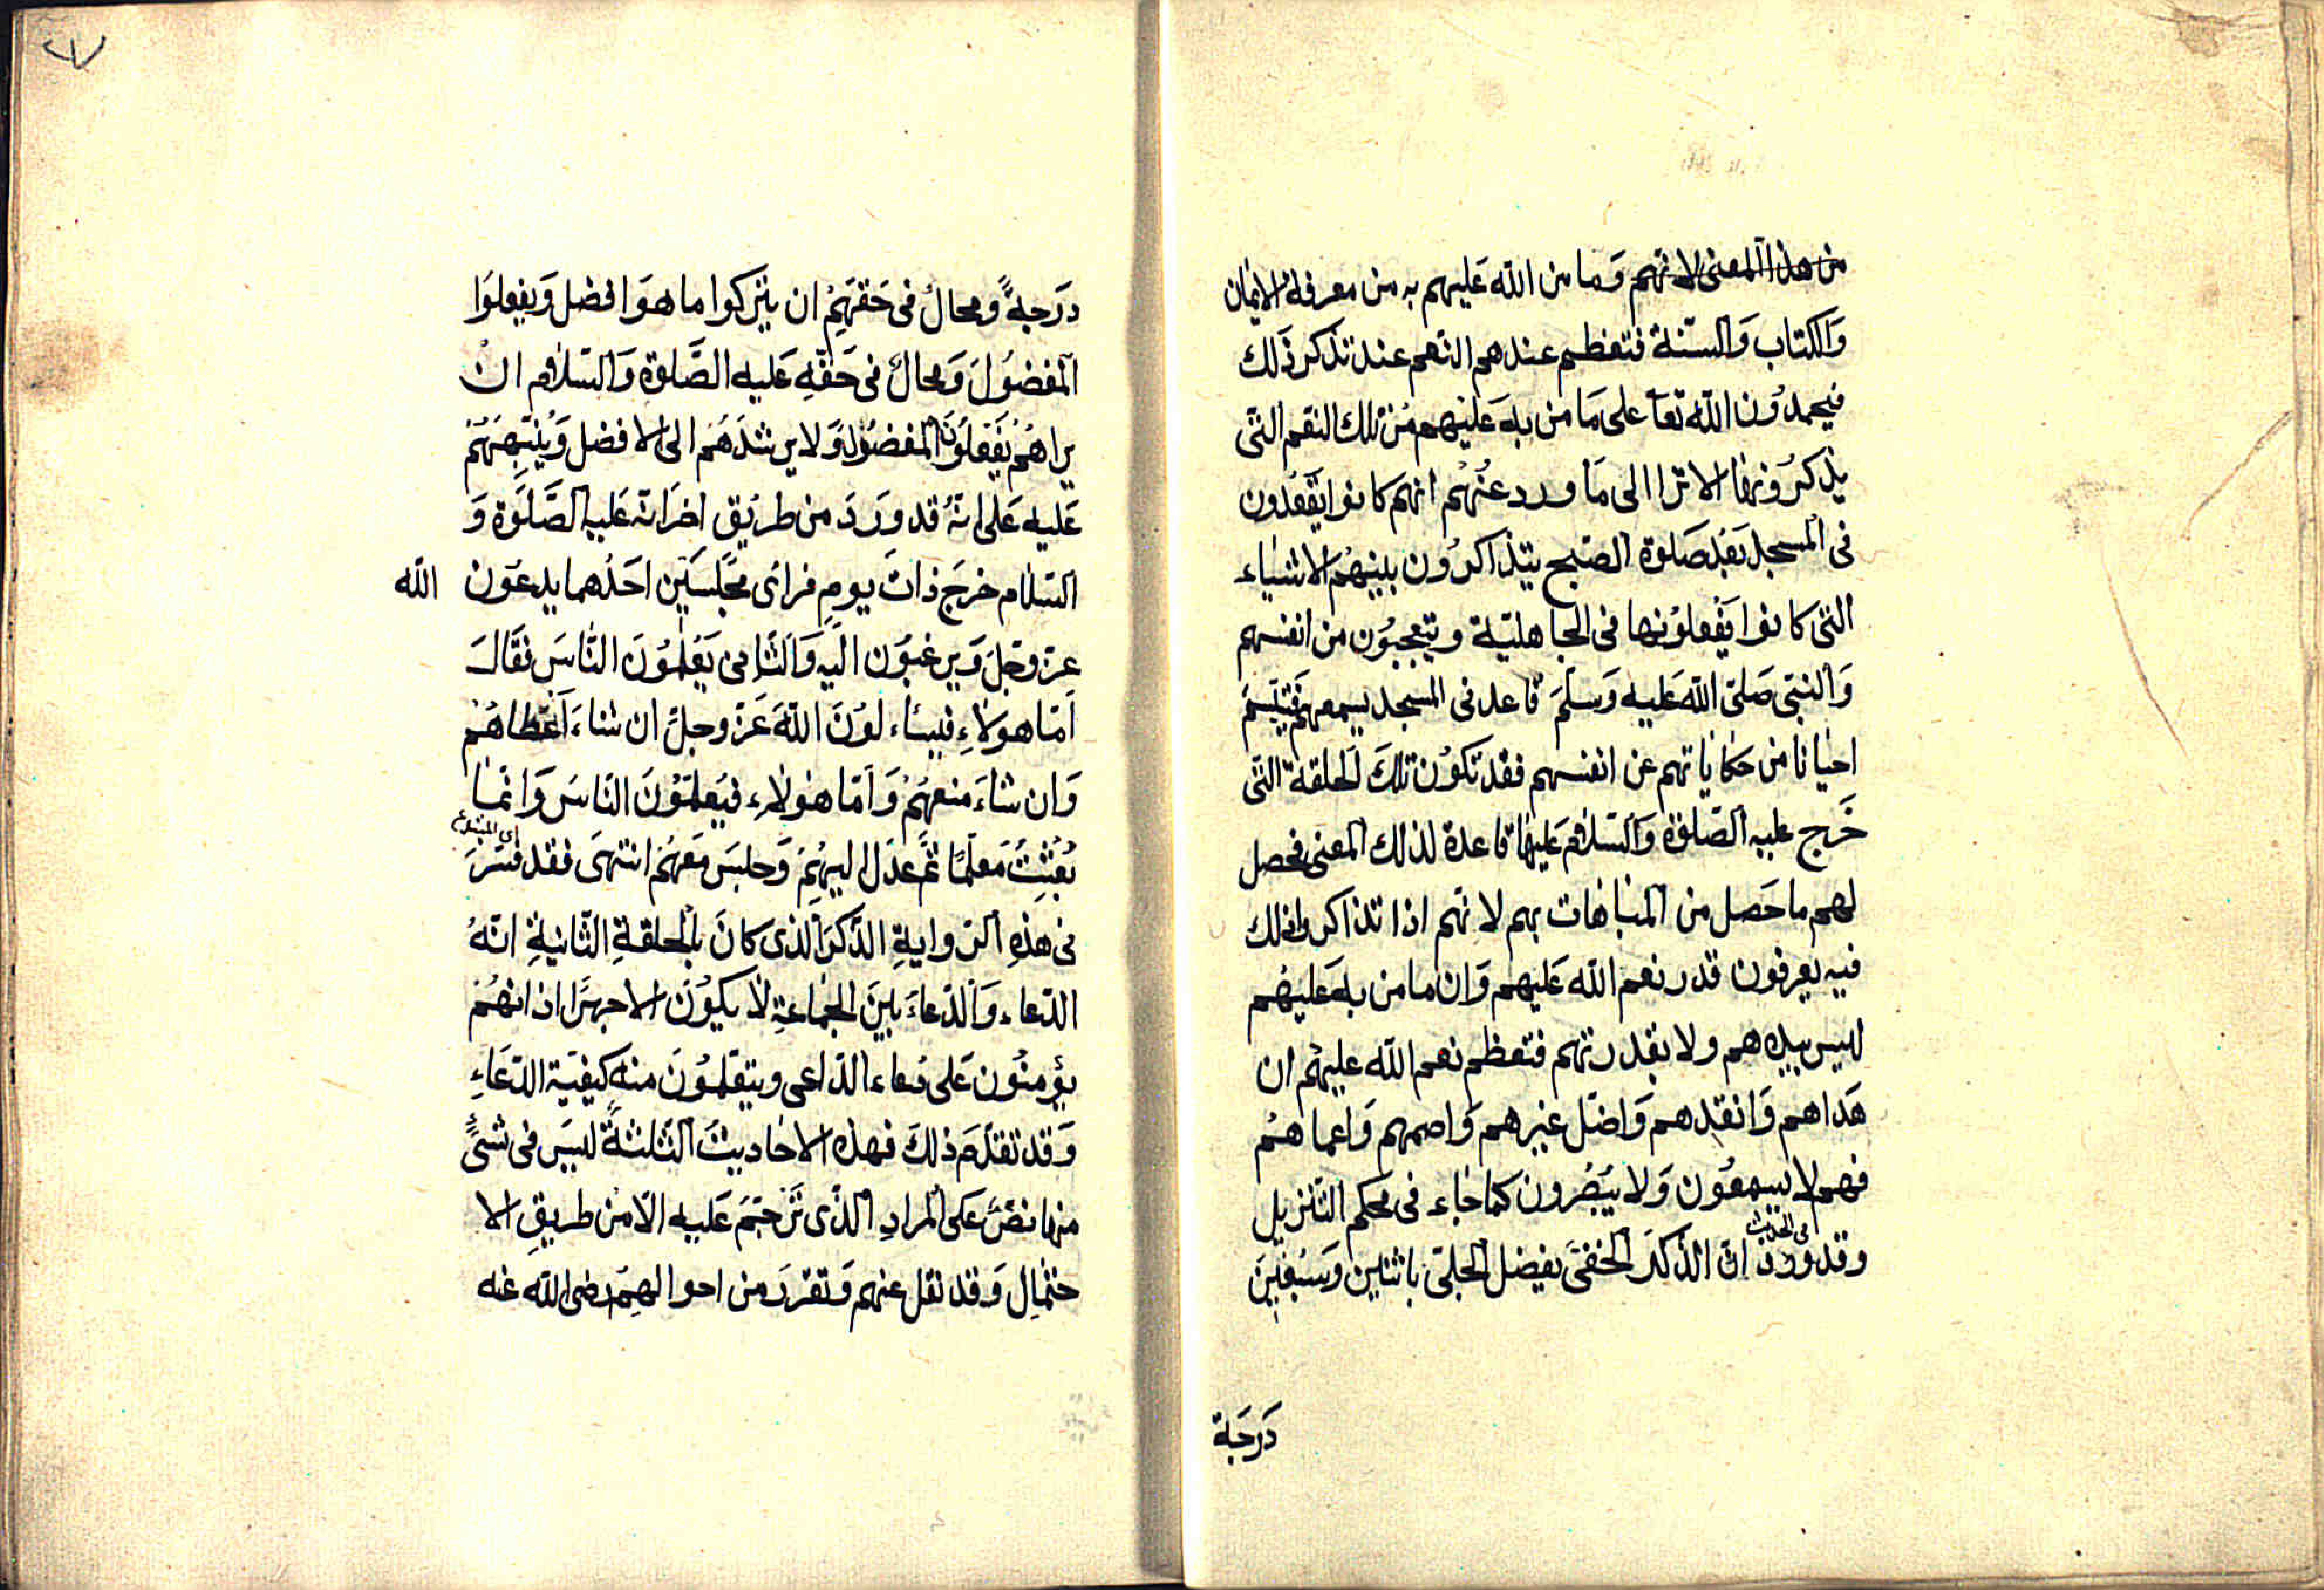 من هذا المعنى لانهم وما من الله عليهم به من معرفة الايمان
والكتاب والسنة فتعظم عندهم النعم عند تذكر ذلك
فيحمدون الله تعا على ما من به عليهم من تلك النقم التى
يذكرونها الا ترا الى ما ورد عنهم انهم كانوا يقعدون
فى المسجد بعد صلوة الصبح يتذاكرون بينهم الاشياء
التى كانوا يفعلونها فى الجاهلية ويتعجبون من انفسهم
والنبى صلى الله عليه وسلم قاعد فى المسجد يسمعهم فتبسم
احيانا من حكاياتهم عن انفسهم فقد تكون تلك الحلقة التى
خرج عليه الصلوة والسلام عليها قاعدة لذلك المعنى فحصل
لهم ما حصل من المباهات بهم لانهم اذا تذاكروا ذلك
فيه يعرفون قدر نعم الله عليهم وان ما من به عليهم
ليس بيدهم ولا بقدرتهم فتعظم نعم الله عليهم ان
هداهم وانقدهم واضل غيرهم واصمهم واعماهم
فهم لا يسمعون ولا يبصرون كما جاء فى محكم التنزيل
فى الحديث
وقد ورد ان الذكر الخفى يفضل الجلى باثنين وسبعين
درجة
٧
درجة ومحال فى حقهم ان يتركوا ما هو افضل ويفعلوا
المفضول ومحال فى حقه عليه الصلوة والسلام ان
يراهم يفعلون المفضول ولا يرشدهم الى الافضل وينبههم
عليه على انه قد ورد من طريق اخر انه عليه الصلوة و
السلام خرج ذات يوم فراى مجلسين احدهما يدعون الله
عز وجل ويرغبون اليه والثانى يعلمون الناس فقال
اما هولاء فيساءلون الله عز وجل ان شاء اعطاهم
وان شاء منعهم واما هولاء فيعلمون الناس وانما
بعثت معلما ثم عدل اليهم وجلس معهم انتهى فقد فسر
فى هذه الرواية الذكر الذى كان بالحلقة الثانية انه
الدعاء والدعاء بين الجماعة لا يكون الا جهرا اذ انهم
يؤمنون على دعاء الداعى ويتعلمون منه كيفية الدعاء
وقد تقدم ذلك فهذه الاحاديث الثلثة ليس فى شئ
منها نص على المراد الذى ترجم عليه الا من طريق الا
حتمال وقد نقل عنهم وتقرر من احوالهم رضى الله عنه